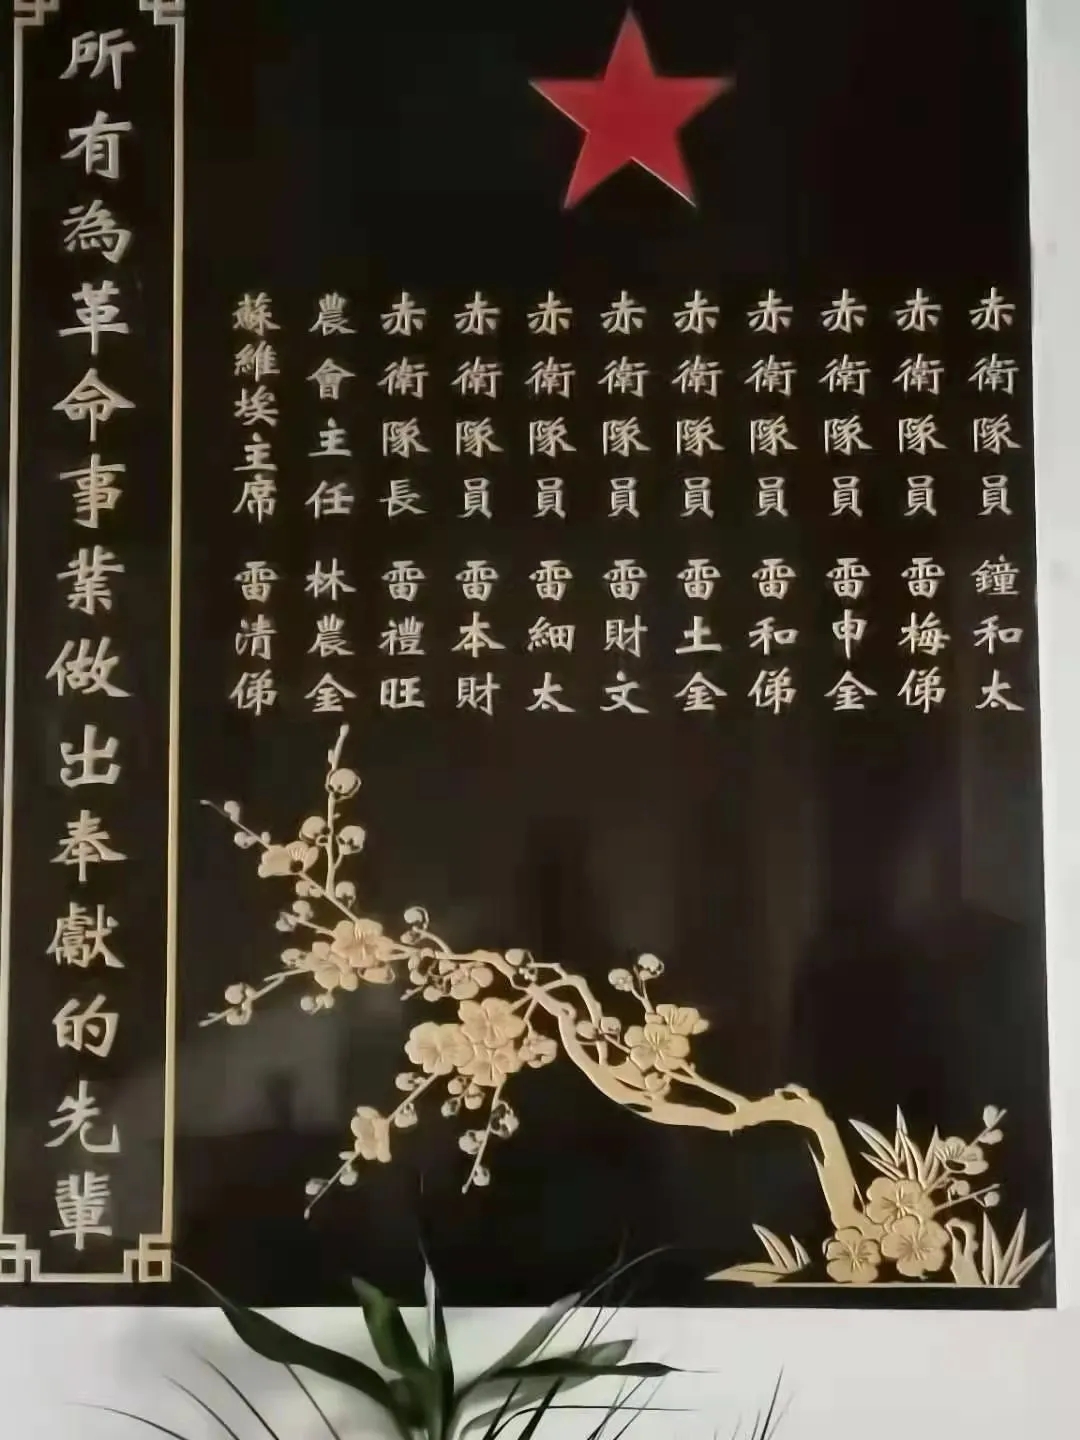 所有為革命事業做出奉獻的先輩
蘇維埃主席 雷清俤
農會主任 林農金
赤衛隊長 雷禮旺
赤衛隊員 雷本財
赤衛隊員 雷細太
赤衛隊員 雷財文
赤衛隊員 雷土金
赤衛隊員 雷和俤
赤衛隊員 雷申金
赤衛隊員 雷梅俤
赤衛隊員 鐘和太